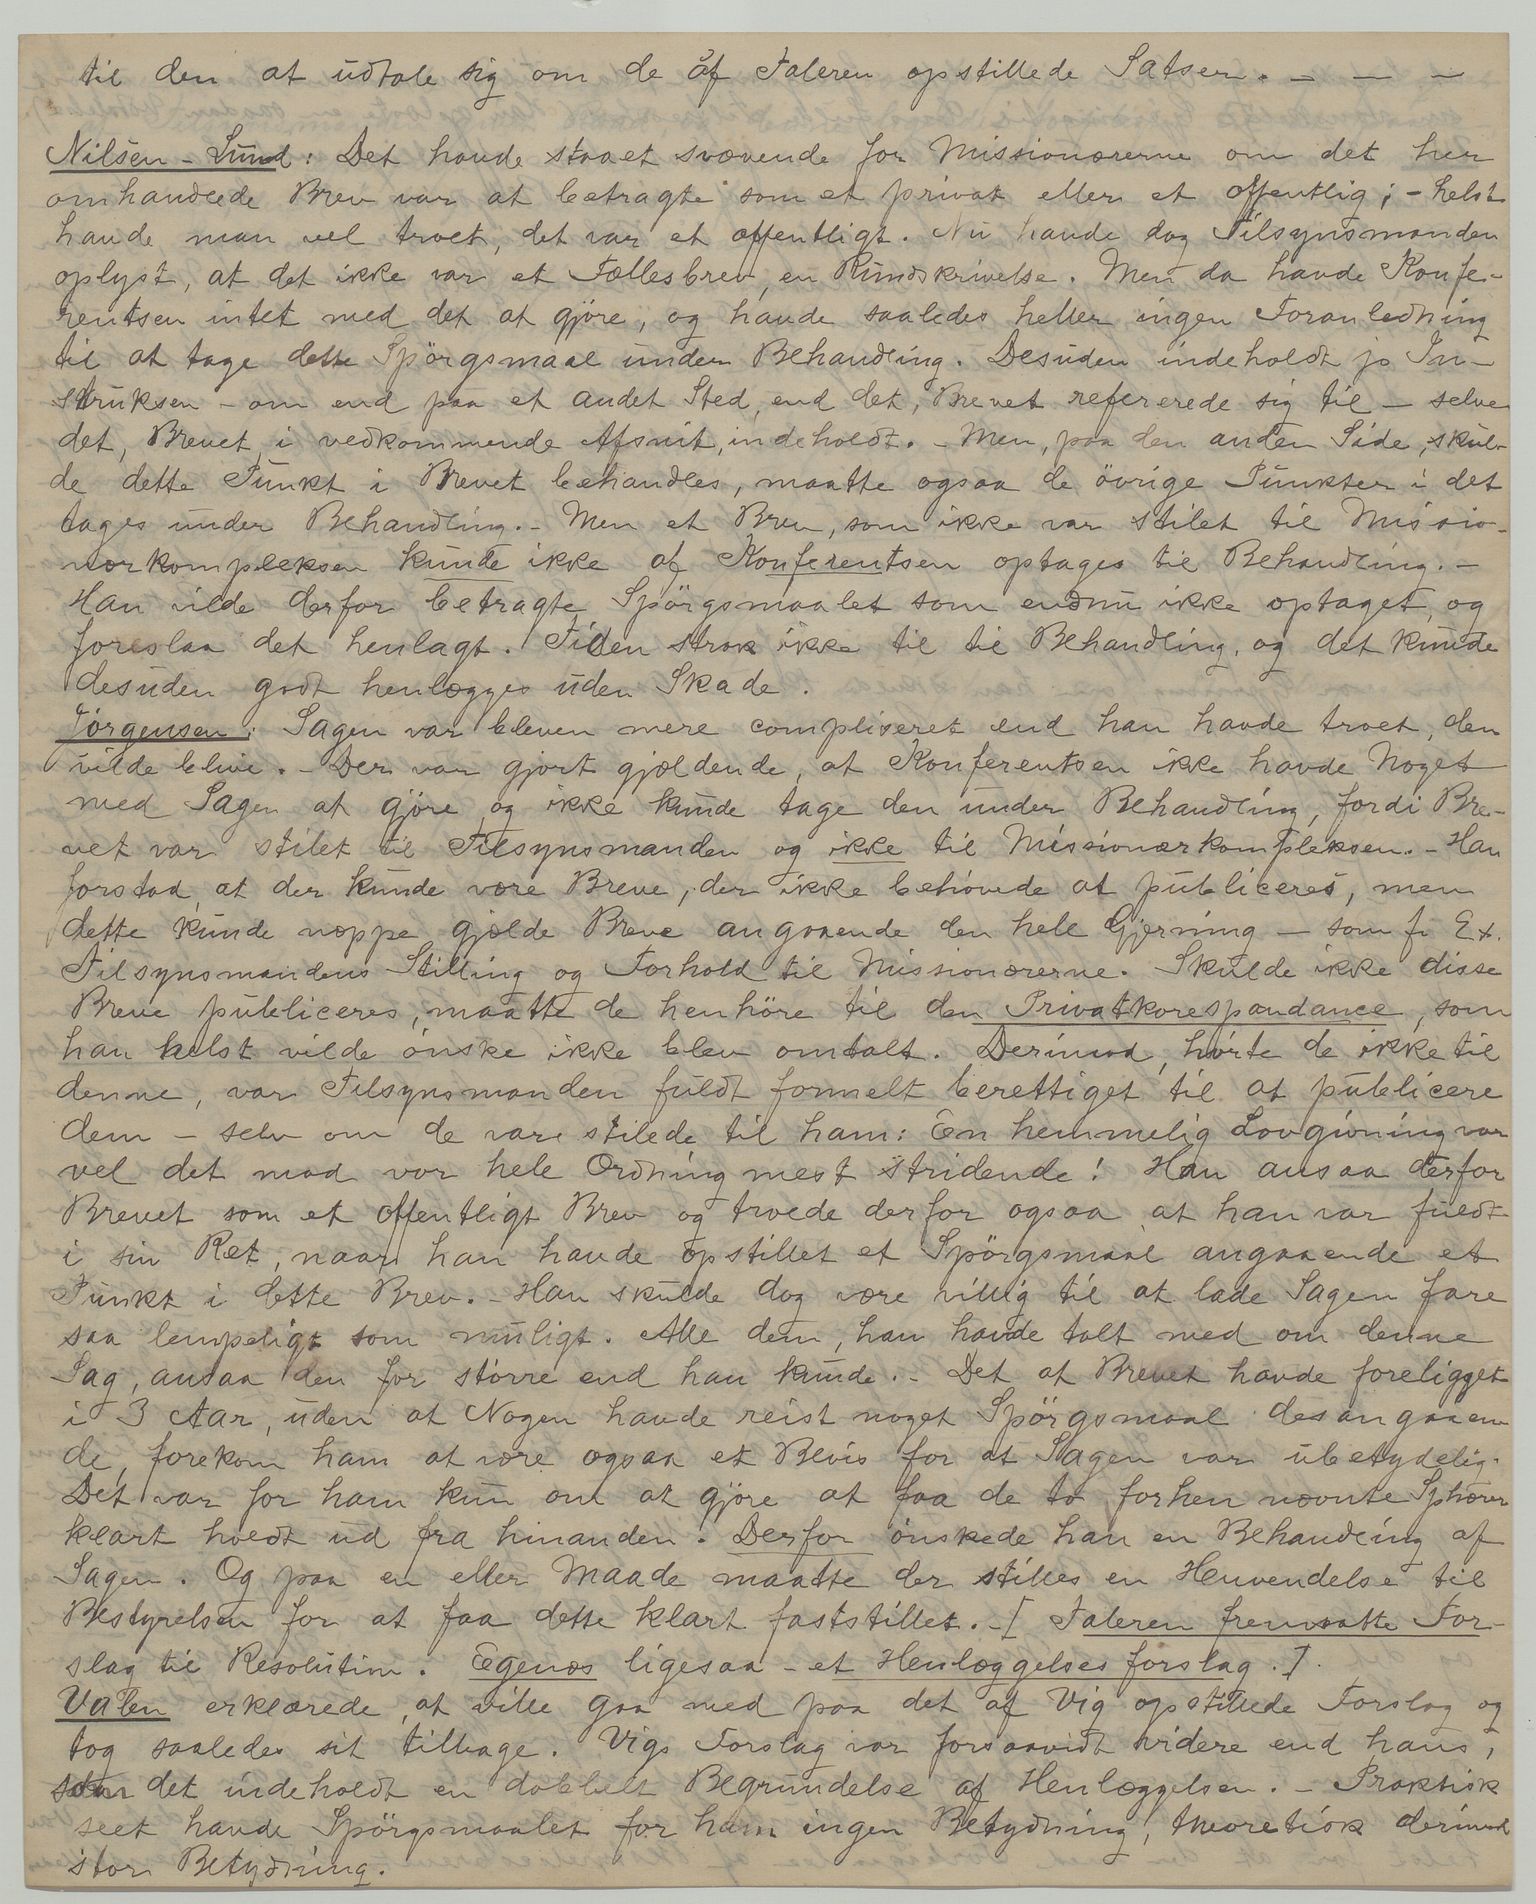 til den at udtale sig om de af Taleren opstillede Satser. – – –
Nilsen-Lund: Det havde staaet svævende for Missionærerne om det her
omhandlede Brev var at betragte som et privat eller et offentlig; – helst
havde man vel troet, det var et offentligt. Nu havde dog Tilsynsmanden
oplyst, at det ikke var et Fællesbrev, en Rundskrivelse. Men da havde Konfe-
rentsen intet med det at gjøre, og havde saaledes heller ingen Foranledning
til at tage dette Spörgsmaal under Behandling. Desuden indeholdt jo In-
struksen – om end paa et andet Sted, end det, Brevet refererede sig til – selve
det, Brevet, i vedkommende Afsnit, indeholdt. – Men, paa den anden Side, skul-
de dette Punkt i Brevet behandles, maatte ogsaa de övrige Punkter i det
tages under Behandling. – Men et Brev, som ikke var stilet til Missio-
nærkompleksen kunde ikke af Konferentsen optages til Behandling. –
Han vilde derfor betragte Spörgsmaalet som endnu ikke optaget, og
foreslaa det henlagt. Tiden strak ikke til til Behandling, og det kunde
desuden godt henlægges uden Skade.
Jørgensen: Sagen var bleven mere compliseret end han havde troet, den
vilde blive. – Der var gjort gjældende, at Konferentsen ikke havde Noget
med Sagen at gjøre, og ikke kunde tage den under Behandling, fordi Bre-
vet var stilet til Tilsynsmanden og ikke til Missionærkompleksen. – Han
forstod, at der kunde være Breve, der ikke behövede at publiceres, men
dette kunde næppe gjælde Breve angaaende den hele Gjerning – som f. Ex.
Tilsynsmandens Stilling og Forhold til Missionærerne. Skulde ikke disse
Breve publiceres, maatte de henhöre til den Privatkorespondance, som
han helst vilde ønske ikke blev omtalt. Derimod, hörte de ikke til
denne, var Tilsynsmanden fuldt formelt berettiget til at publicere
dem – selv om de vare stilede til ham: En hemmelig Lovgivning var
vel det mod vor hele Ordning mest stridende! Han ansaa derfor
Brevet som et offentligt Brev og troede derfor ogsaa at han var fuldt
i sin Ret, naar han havde opstillet et Spörgsmaal angaaende et
Punkt i dette Brev. – Han skulde dog være villig til at lade Sagen fare
saa lempeligt som muligt. Alle dem, han havde talt med om denne
Sag, ansaa den for större end han kunde. – Det at Brevet havde foreligget
i 3 Aar, uden at Nogen havde reist noget Spörgsmaal desangaaen-
de, forekom ham at være ogsaa et Bevis for at Sagen var ubetydelig.
Det var for ham kun om at gjöre at faa de to forhen nævnte Sphærer
klart holdt ud fra hinanden. Derfor ønskede han en Behandling af
Sagen. Og paa en eller Maade maatte der stilles en Henvendelse til
Bestyrelsen for at faa dette klart faststillet. – [Taleren fremsatte For-
slag til Resolution. Egenæs ligesaa – et Henlæggelsesforslag.].
Valen erklærede at ville gaa med paa det af Vig opstillede Forslag og
tog saaledes sit tilbage. Vigs Forslag var forsaavidt videre end hans,
som det indeholdt en dobbelt Begrundelse af Henlæggelsen. – Praktisk
seet havde Spörgsmaalet for ham ingen Betydning, theoretisk derimod
stor Betydning.